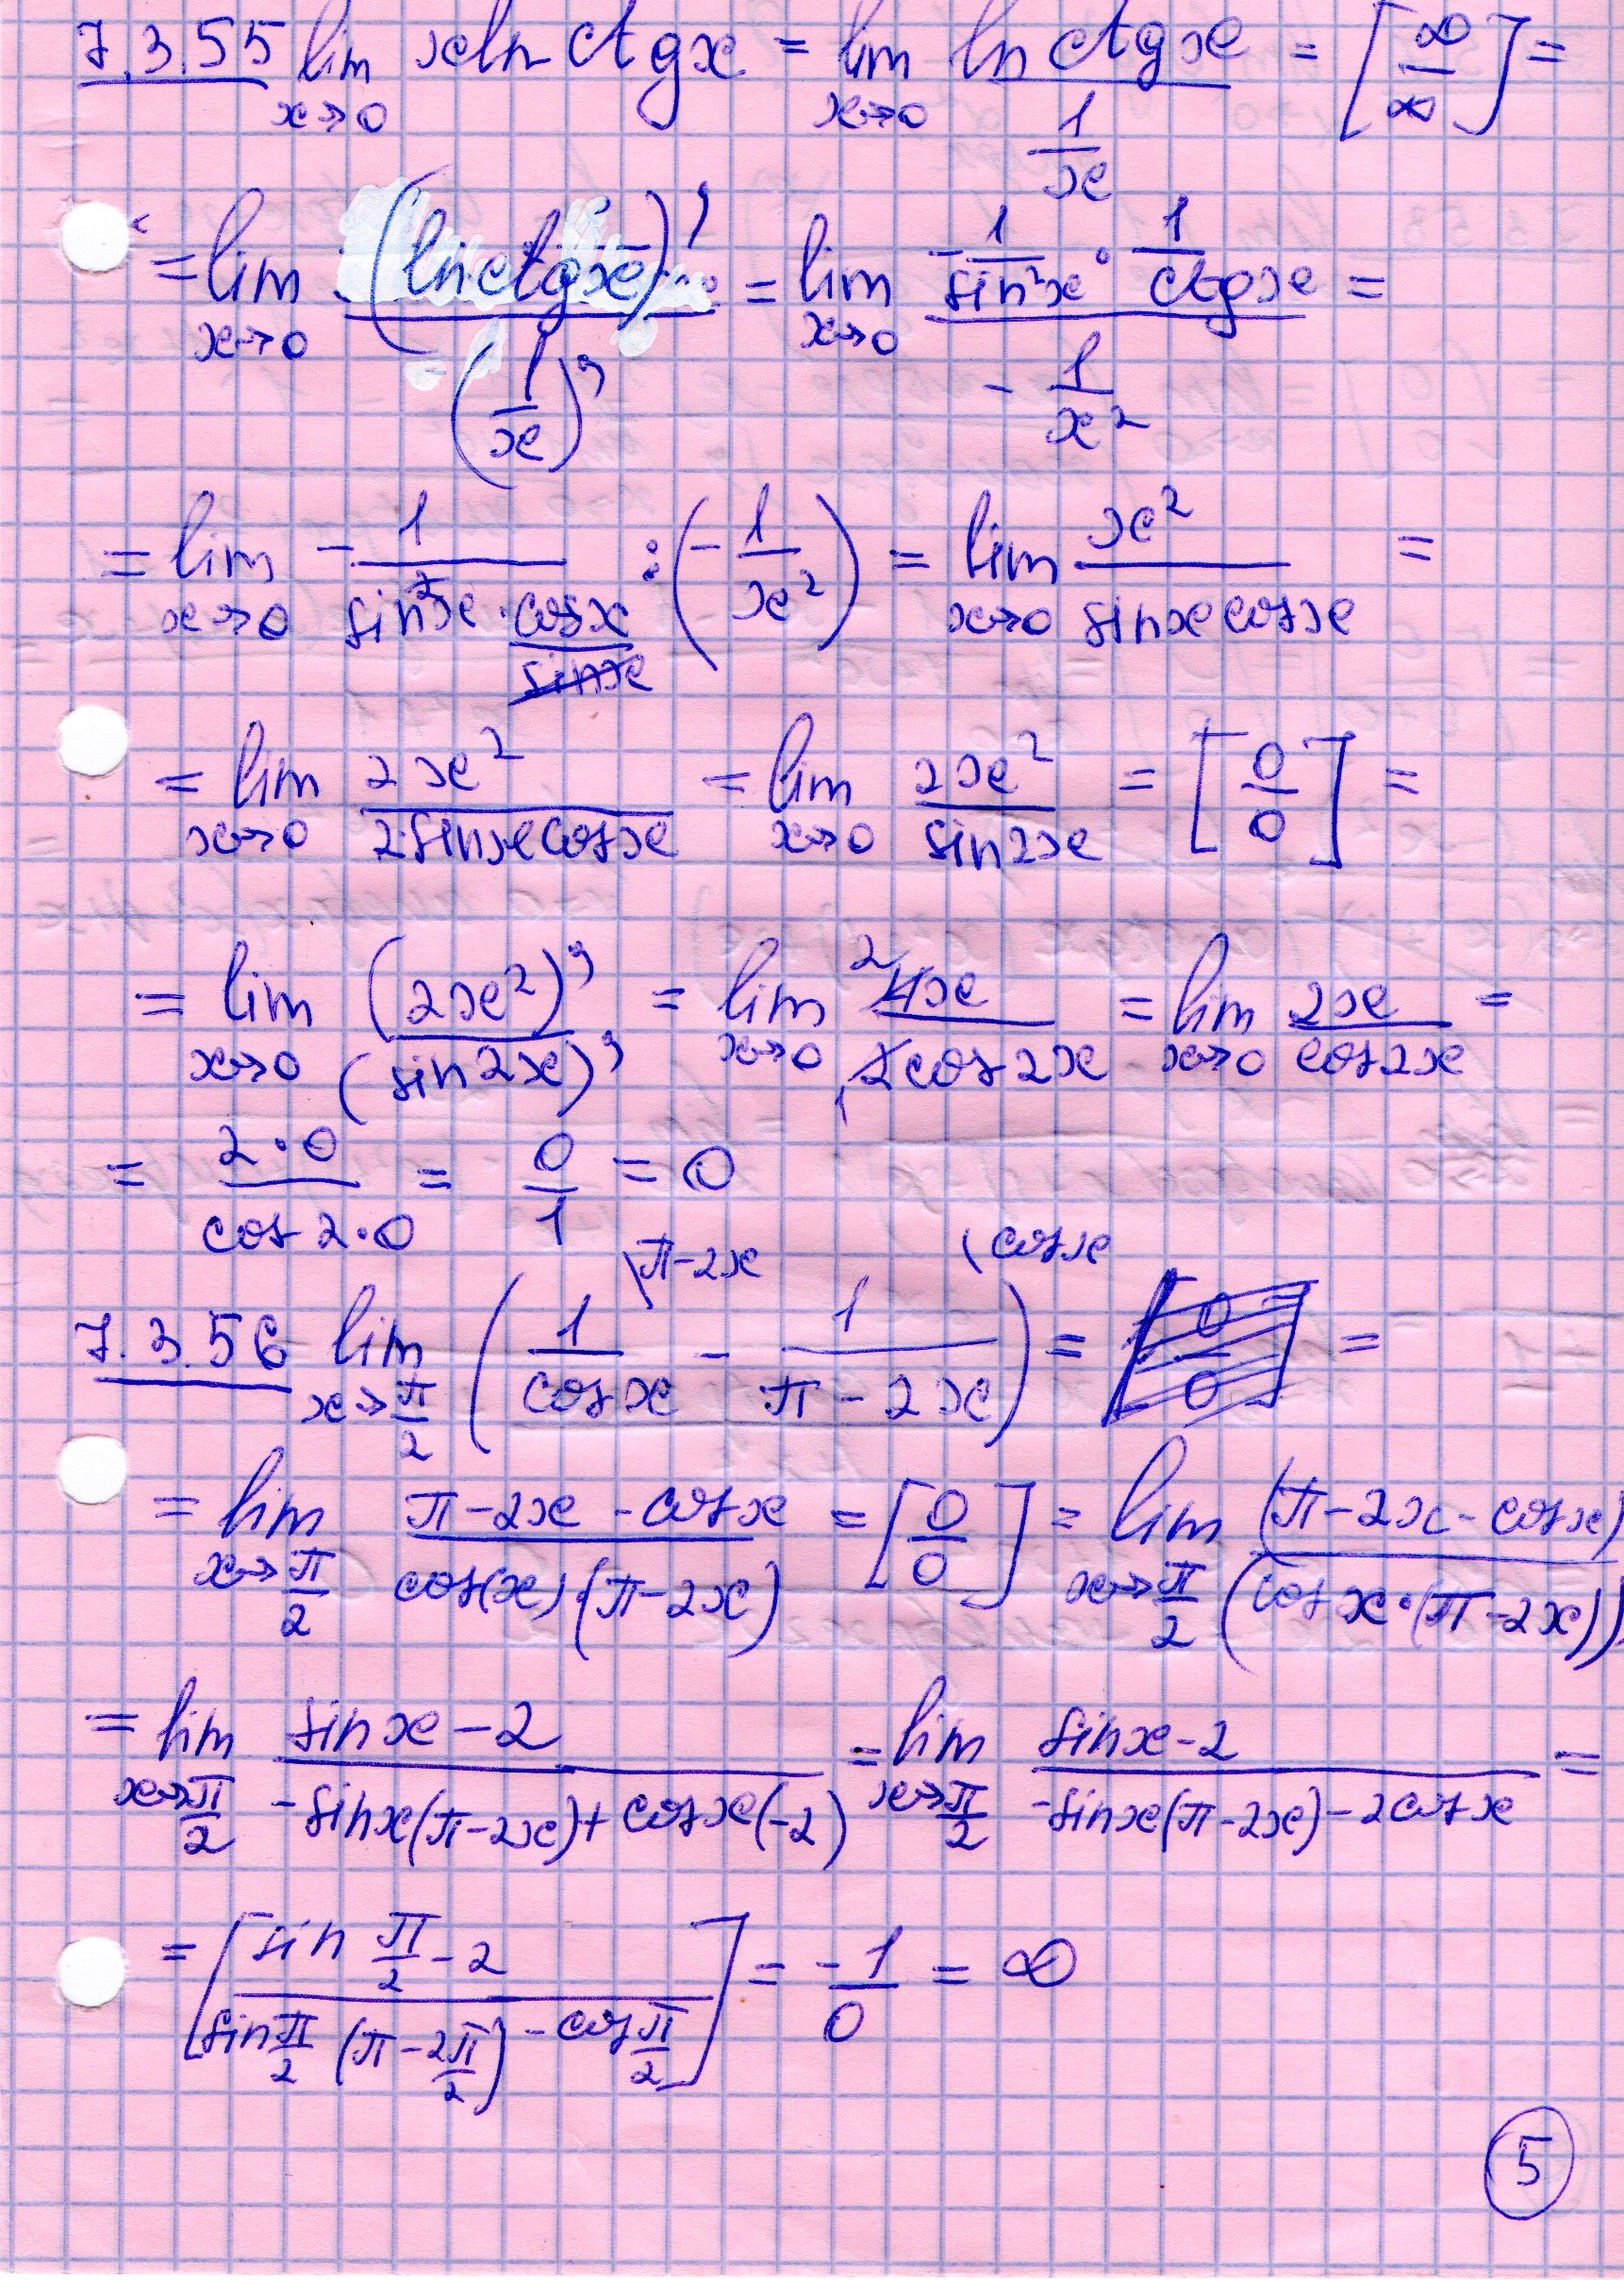 7.3.55 lim x→0 x ln ctg x = lim x→0 ln ctg x / (1/x) = [∞/∞] =
= lim x→0 (ln ctg x)' / (1/x)' = lim x→0 (-1/sin²x · 1/ctg x) / (-1/x²) =
= lim x→0 -1/(sin²x · cos x/sin x) : (-1/x²) = lim x→0 x²/(sin x cos x) =
= lim x→0 2x²/(2 sin x cos x) = lim x→0 2x²/sin 2x = [0/0] =
= lim x→0 (2x²)'/(sin 2x)' = lim x→0 2 4x/(1 2 cos 2x) = lim x→0 2x/cos 2x =
= 2·0/cos 2·0 = 0/1 = 0
\π-2x \cos x
7.3.56 lim x→π/2 (1/cos x - 1/(π-2x)) = [0/0] =
= lim x→π/2 (π-2x-cos x)/(cos(x)(π-2x)) = [0/0] = lim x→π/2 (π-2x-cos x)/(cos x·(π-2x))
= lim x→π/2 (sin x-2)/(-sin x(π-2x)+cos x(-2)) = lim x→π/2 (sin x-2)/(-sin x(π-2x)-2cos x) =
= [(sin π/2 -2)/(sin π/2 (π-2π/2) - cos π/2)] = -1/0 = ∞
5